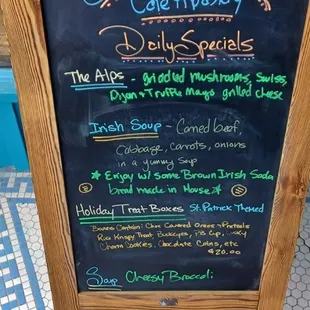 Daily Specials
The Alps - Griddled mushrooms, Swiss,
Dijon + Truffle Mayo grilled cheese
Irish Soup - Corned beef,
Cabbage, Carrots, onions
in a yummy Soup
Enjoy w/ some Brown Irish Soda
bread made in House
Holiday Treat Boxes St. Patrick Themed
Boxes Contain: Choc Covered Oreos + Pretzels
Rice Krispy Treat, Buckeyes, PB Cup,
Charm Cookies, Chocolate Coins, etc
$20.00
Soup Cheesy Broccoli